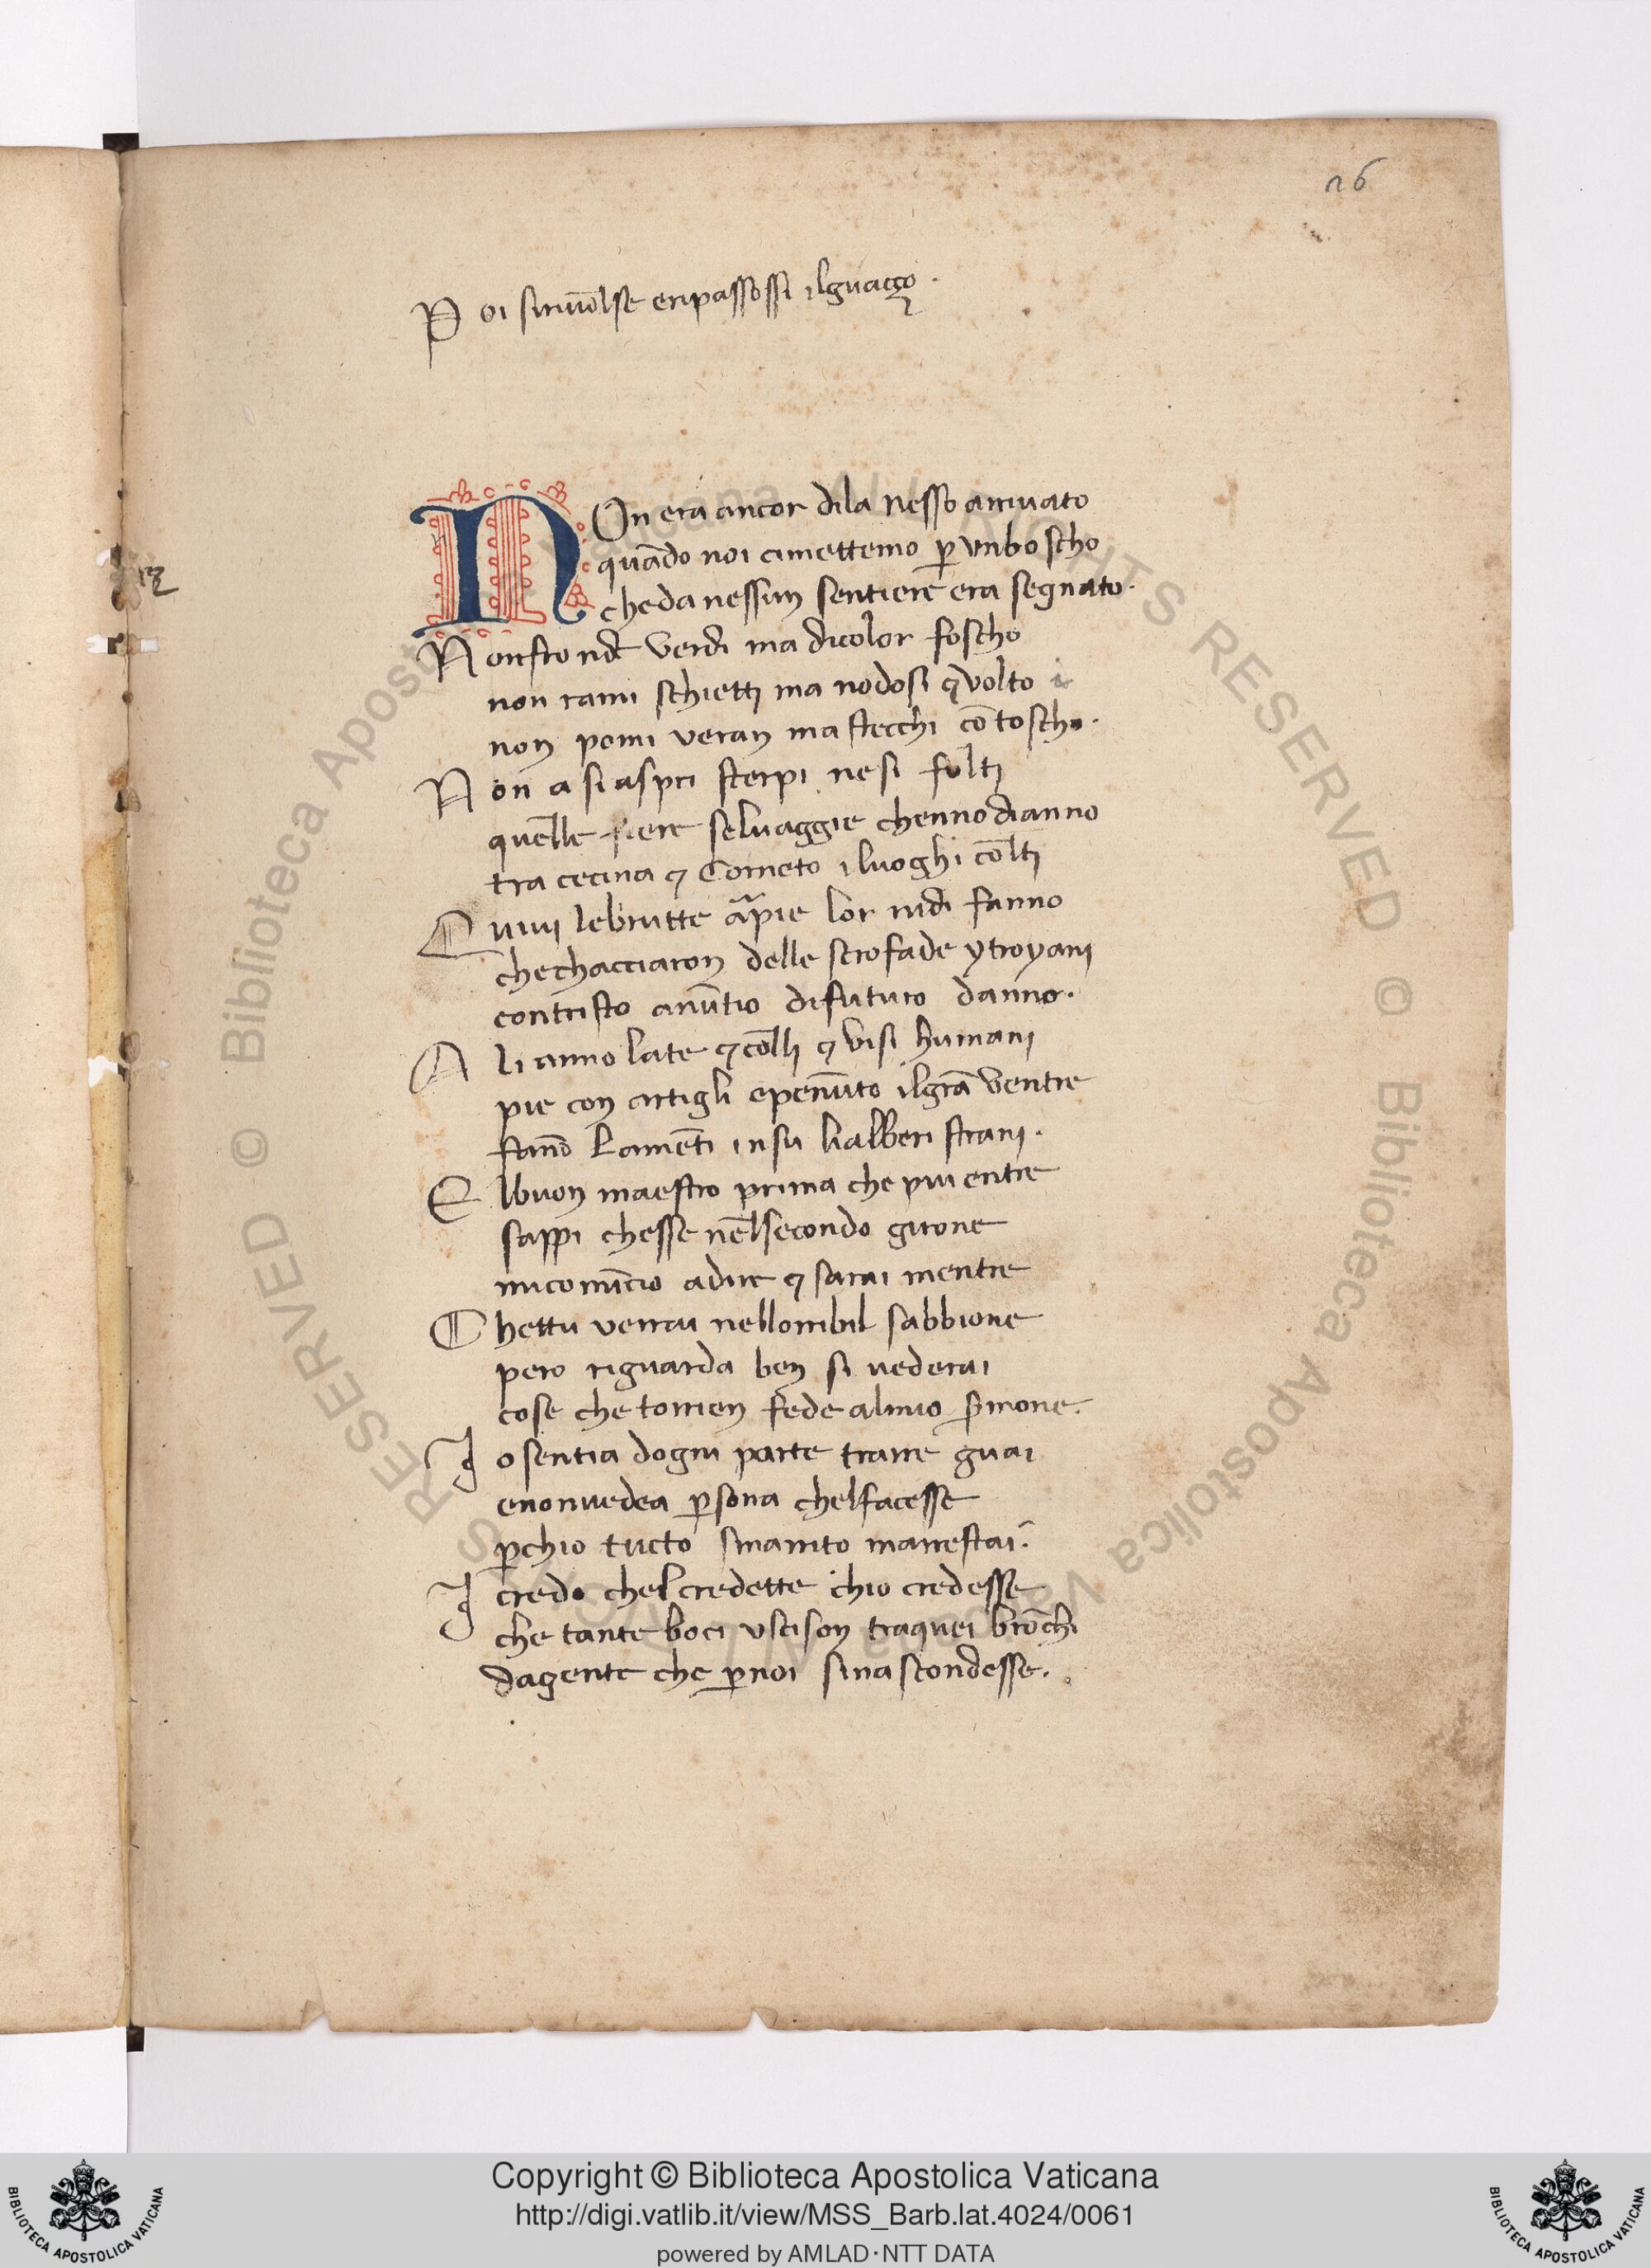 26
Poi sirivolse eripassossi ilguaçço.
NOn era ancor dila nesso arrivato
quãdo noi cimettemo ꝑ vnboscho
cheda nessun sentiere era segnato.
Nonfronde verdi ma dicolor foscho
non rami schietti ma nodosi ⁊volto i
non pomi veran ma stecchi cõ toscho.
Non a si aspri sterpi ne si folti
quelle fiere seluaggie chennodianno
tra cecina ⁊ Corneto iluoghi cõlti
Quiui lebrutte arpie lor nidi fanno
chechacciaron delle strofade ytroyani
contristo anũtio difuturo danno.
Ali anno late ⁊colli ⁊ visi humani
pie con artigli epennuto ilgrã ventre
fanno lamẽti insu lialberi strani.
Elbuon maestro prima che piu entre
sappi chesse nẽlsecondo girone
micomĩcio adire ⁊ sarai mentre
Chettu verrai nellorribil sabbione
pero riguarda ben si uederai
cose che torrien fede almio s̃mone.
Io sentia dogni parte trarre guai
enonuedea ꝑsona chelfacesse
ꝑchio tucto smarrito marrestai.
I credo chelcredette chio credesse
che tante boci vscison traquei brõchi
dagente che ꝑnoi sinascondesse.
© Biblioteca Apostolica Vaticana ALL RIGHTS RESERVED © Biblioteca Apostolica Vaticana ALL RIGHTS RESERVED
BIBLIOTECA APOSTOLICA VATICANA
Copyright © Biblioteca Apostolica Vaticana
http://digi.vatlib.it/view/MSS_Barb.lat.4024/0061
powered by AMLAD·NTT DATA
BIBLIOTECA APOSTOLICA VATICANA